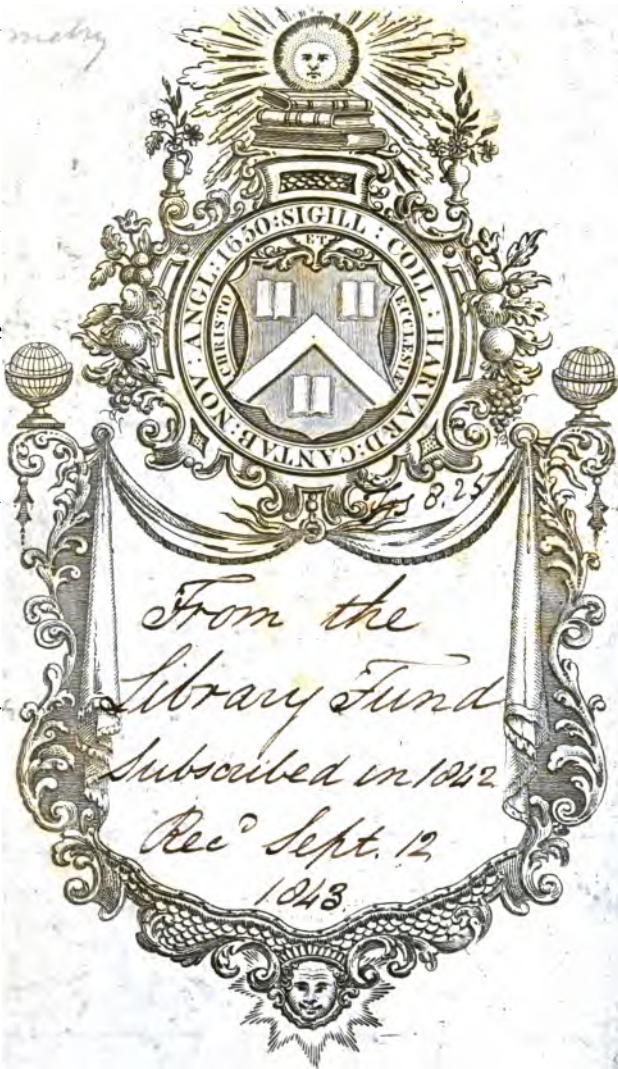 metry
SIGILL : COLL : HARVARD : CANTAB : NOV : ANGL : 1650 :
ET
CHRISTO
ECCLESIÆ
Frs 8.25
From the
Library Fund
Subscribed in 1842
Rec^d Sept. 12
1843.